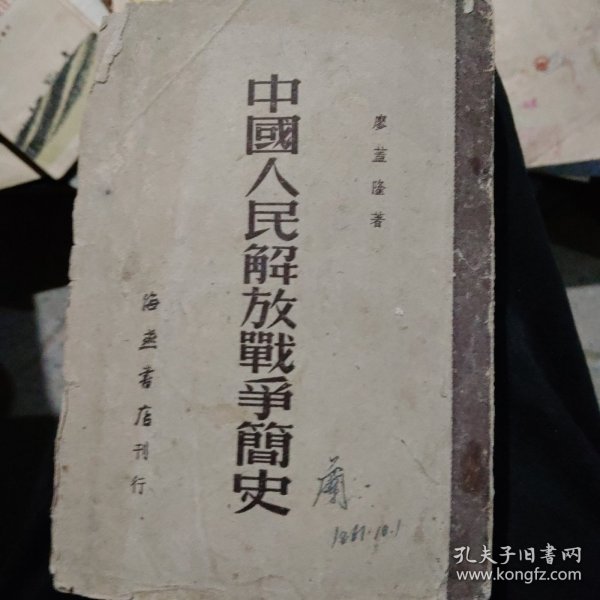 廖蓋隆著
中國人民解放戰爭簡史
海燕書店刊行
孔夫子旧书网
www.kongfz.com